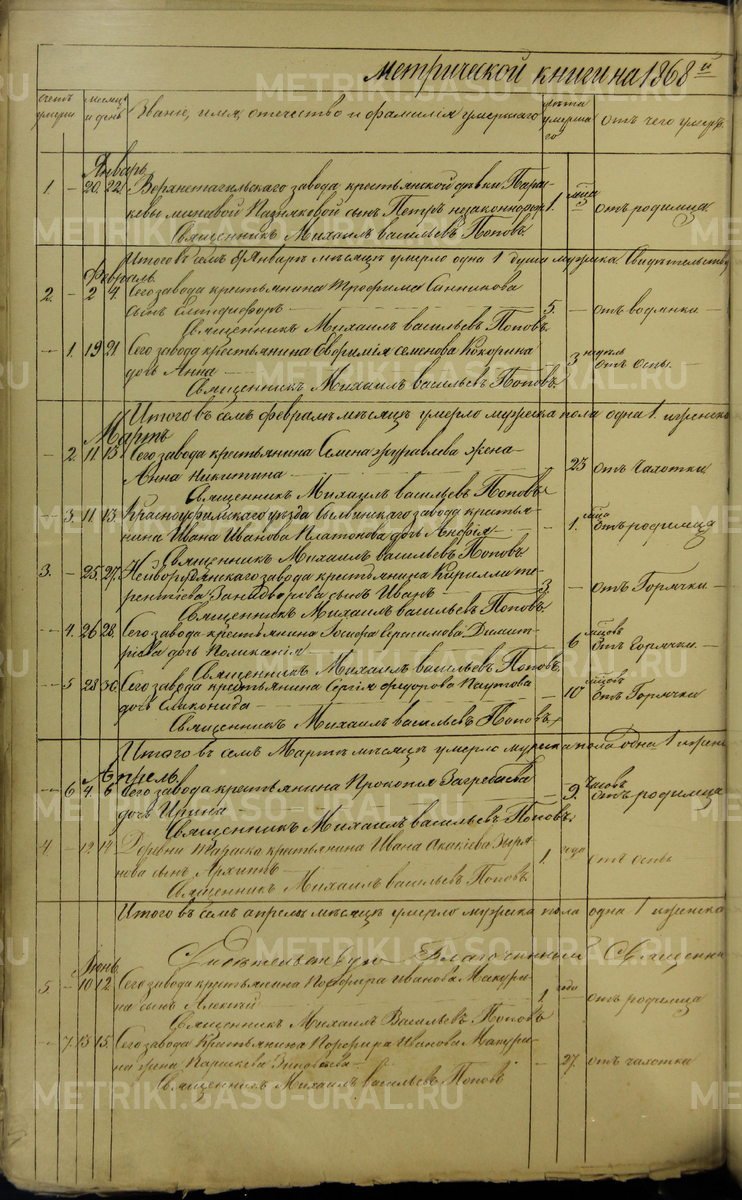 метрической книги на 1868й
счетъ умерш
месяцъ и день
Званіе, имя, отчество и фамилія умершаго
лѣта умерша го
отъ чего умеръ.
Январь
1. – 20. 22. Верхнетагильскаго завода крестьянской дѣвки Параско
1. мца отъ родимца.
сынъ Петръ незаконнорож
Священникъ Михаилъ васильевъ Поповъ.
Итого въ семъ Январѣ мѣсяцѣ умерло одна 1 душа мужска. Свидѣтельству
Февраль
2. – 2. 4. Сего завода крестьянина Трофима Санникова
сынъ
5. – отъ водянки. –
Священникъ Михаилъ васильевъ Поповъ.
– 1. 19 21. Сего завода крестьянина Евфимія семенова Кокорина
дочь Анна –
3 недѣль отъ Оспы. –
Священникъ Михаилъ васильевъ Поповъ.
Итого въ семъ февралѣ мѣсяцѣ умерло мужска пола одна 1. и женска
Мартъ
– 2. 11. 13. Сего завода крестьянина Семена журавлева жена
Анна Никитина –
23 отъ Чахотки
Священникъ Михаилъ васильевъ Поповъ.
– 3. 11. 13. Красноуфимскаго уѣзда завода крестья-
нина Ивана Иванова Платонова дочь
1. мца отъ родимца
Священникъ Михаилъ васильевъ Поповъ
3. – 25. 27. Нейворудянскаго завода крестьянина Кирилла Те-
рентіева сынъ Иванъ –
3. – отъ Горячки –
Священникъ Михаилъ васильевъ Поповъ
– 4. 26 28. Сего завода крестьянина Димит-
дочь
6 мцовъ отъ Горячки. –
Священникъ Михаилъ васильевъ Поповъ.
– 5 28 30. Сего завода крестьянина Сергія федорова
дочь
10 мцовъ отъ Горячки
Священникъ Михаилъ васильевъ Поповъ.
Итого въ семъ Мартѣ мѣсяцѣ умерло мужска пола одна 1 и женс
Апрель
– 6. 4. 6 Сего завода крестьянина Прокопія Загребаева
дочь Ирина –
9. Часовъ отъ родимца
Священникъ Михаилъ васильевъ Поповъ.
4. – 12. 14. Деревни крестьянина Ивана Акакіева Зыря-
нова сынъ
1. года отъ оспы
Священникъ Михаилъ васильевъ Поповъ
Итого въ семъ апрелѣ мѣсяцѣ умерло мужска пола одна 1 и женска
Благочинный Священни
Іюнь
5. – 10 12. Сего завода крестьянина Порфира Иванова Макури-
на сынъ Алексѣй
1. года отъ родимца
Священникъ Михаилъ Васильевъ Поповъ
– 7. 13 15. Сего завода Крестьянина Порфира Иванова Макури-
на жена
27. отъ чахотки
Священникъ Михаилъ васильевъ Поповъ
METRIKI.GASO-URAL.RU